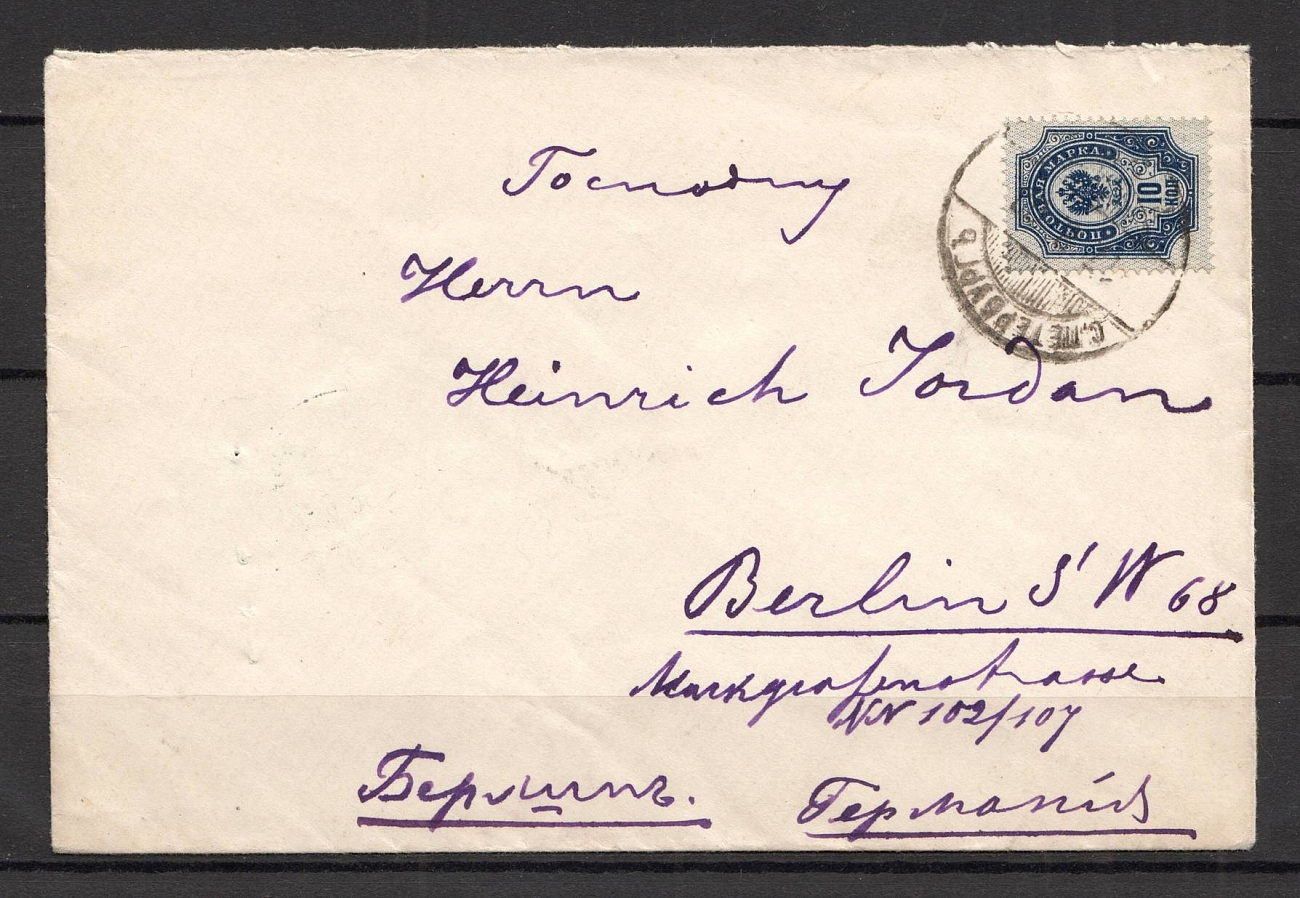 ПОЧТОВАЯ МАРКА.
10
КОП
С.ПЕТЕРБУРГЪ
Господину
Herrn
Heinrich Jordan
Berlin S W 68
Markgrafenstrasse
NN 102/107
Берлинъ.
Германія